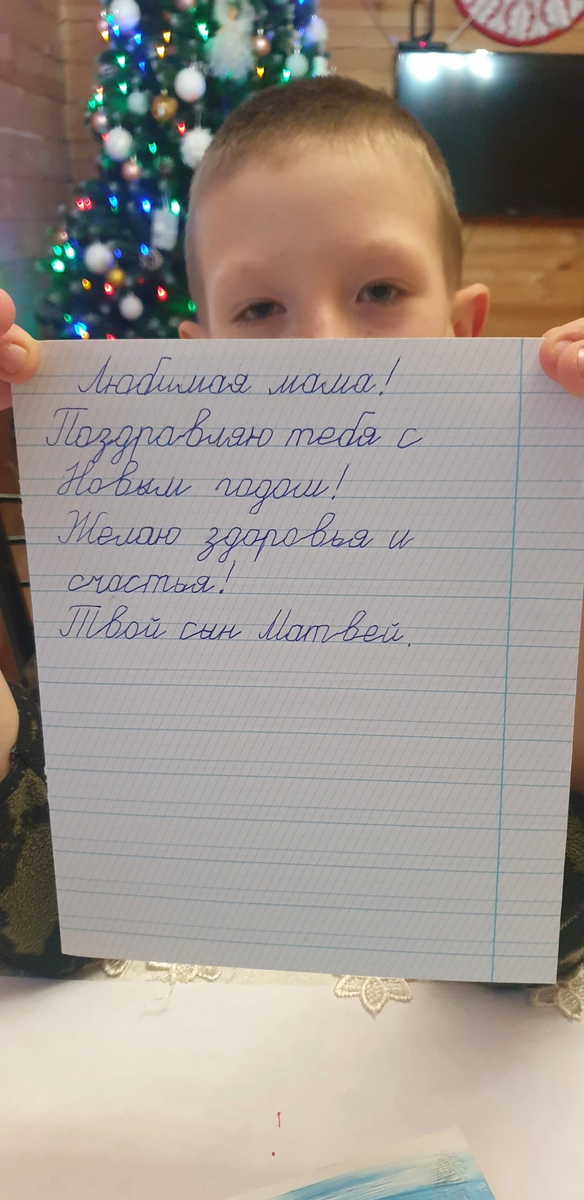 Любимая мама!
Поздравляю тебя с
Новым годом!
Желаю здоровья и
счастья!
Твой сын Матвей.